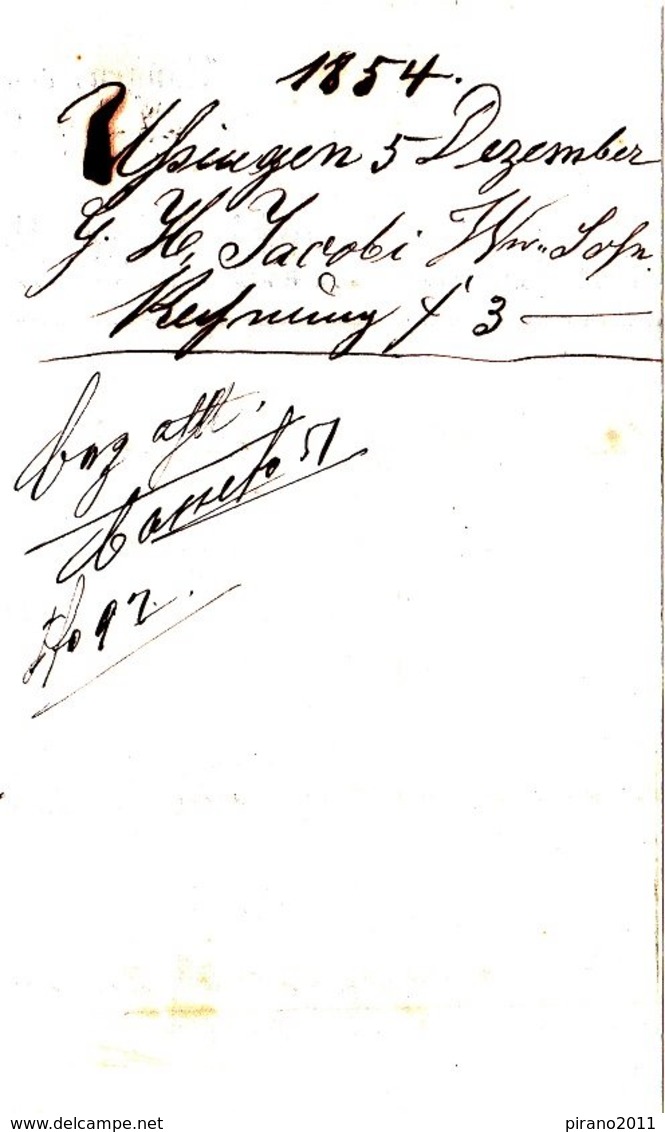 1854.
Usingen 5 Dezember
G. H. Jacobi Wwe. Sohn
Rechnung f 3 —
bezahlt.
No 92.
Posted on www.delcampe.net
pirano2011